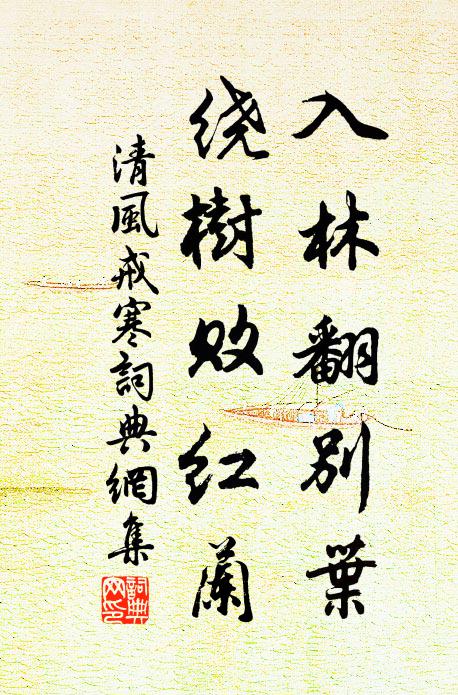 入林翻別葉
绕樹敗红蘭
清風戒寒詞典網集
詞典网印